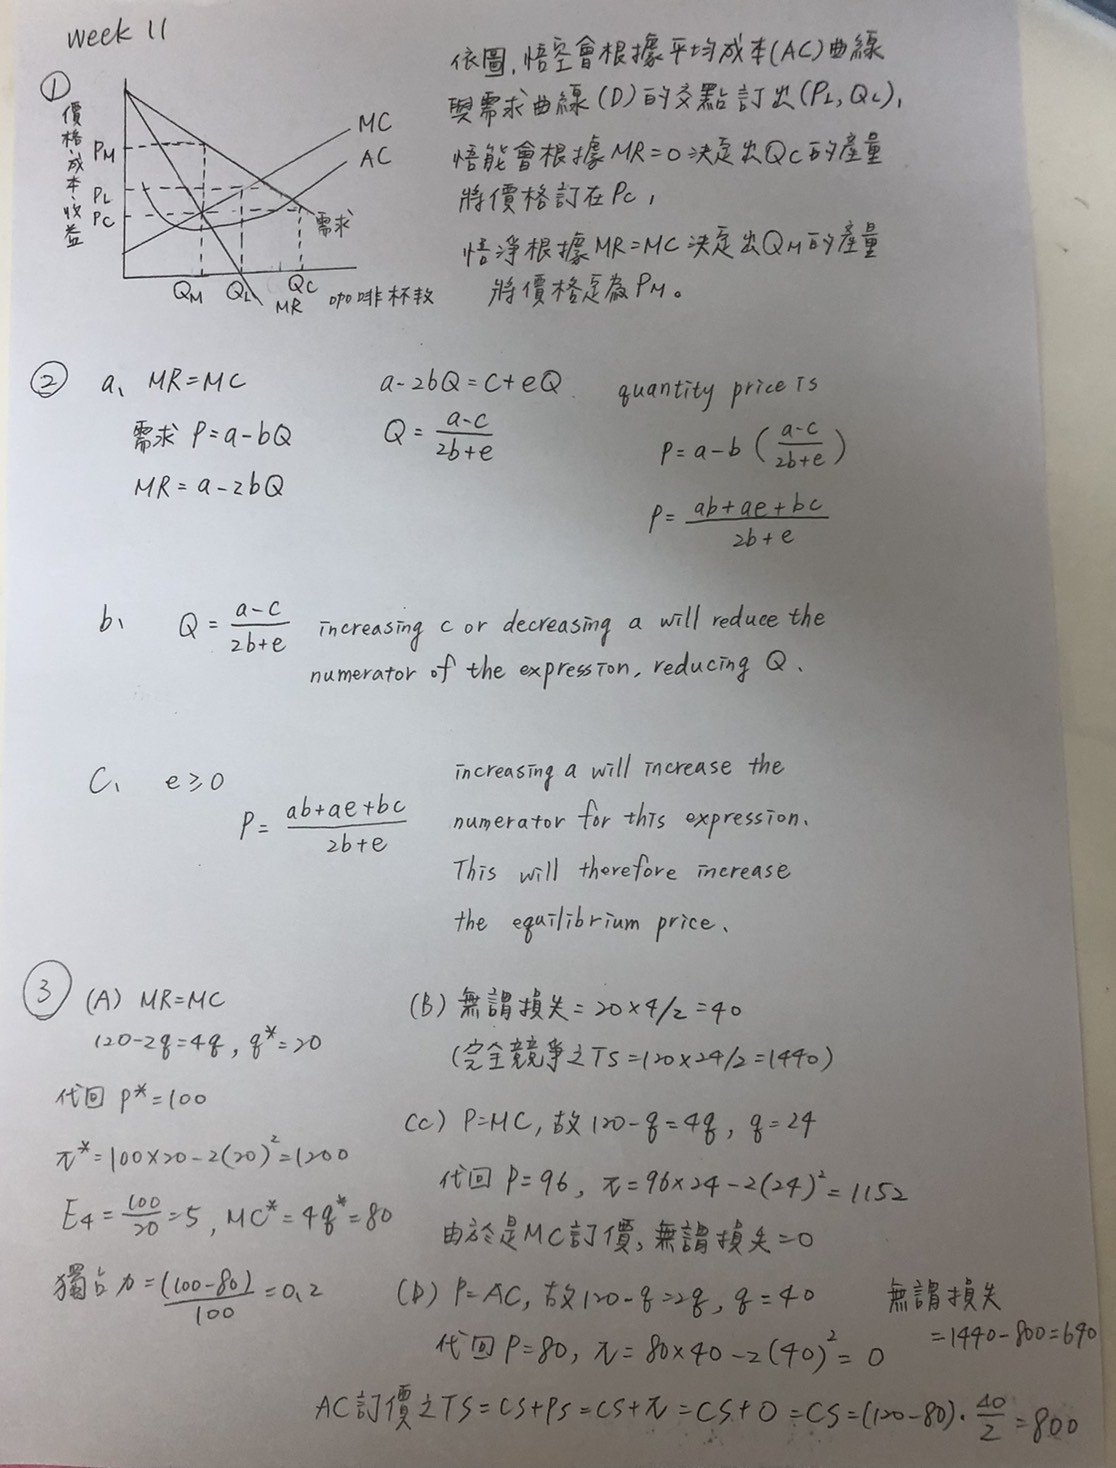 week 11
①
價格、成本、收益
PM
PL
PC
MC
AC
需求
QM QL QC
MR
咖啡杯數
依圖,悟空會根據平均成本(AC)曲線
與需求曲線(D)的交點訂出(PL,QL),
悟能會根據MR=0決定出QC的產量
將價格訂在PC,
悟淨根據MR=MC決定出QM的產量
將價格定為PM。
② a、 MR=MC
需求 P=a-bQ
MR=a-2bQ
a-2bQ=c+eQ
Q=(a-c)/(2b+e)
quantity price is
P=a-b((a-c)/(2b+e))
P=(ab+ae+bc)/(2b+e)
b、 Q=(a-c)/(2b+e) increasing c or decreasing a will reduce the
numerator of the expression, reducing Q.
C、 e≥0
P=(ab+ae+bc)/(2b+e)
increasing a will increase the
numerator for this expression.
This will therefore increase
the equilibrium price.
③ (A) MR=MC
120-2q=4q, q*=20
代回 P*=100
π*=100×20-2(20)²=1200
E4=100/20=5, MC*=4q*=80
獨占力=(100-80)/100=0.2
(B) 無謂損失=20×4/2=40
(完全競爭之TS=120×24/2=1440)
(C) P=MC, 故120-q=4q, q=24
代回 P=96, π=96×24-2(24)²=1152
由於是MC訂價, 無謂損失=0
(D) P=AC, 故120-q=2q, q=40
代回P=80, π=80×40-2(40)²=0
無謂損失
=1440-800=640
AC訂價之TS=CS+PS=CS+π=CS+0=CS=(120-80)·40/2=800